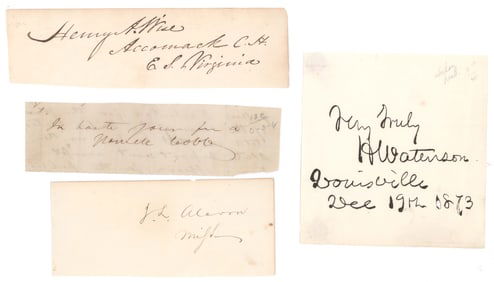 Henry A. Wise
Accomack C. H.
E. S. Virginia
In haste yours
Howell Cobb
J. L. Alcorn
Miss
Very truly
H Watterson
Louisville
Dec 19th 1873